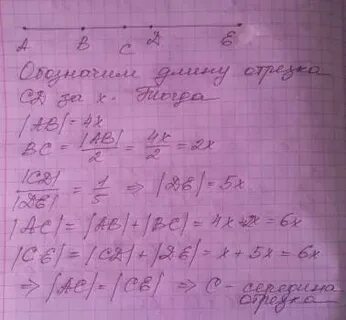 A B C D E
Обозначим длину отрезка
CD за x. Тогда
|AB| = 4x
BC = |AB|/2 = 4x/2 = 2x
|CD|/|DE| = 1/5 ⇒ |DE| = 5x
|AC| = |AB| + |BC| = 4x + 2x = 6x
|CE| = |CD| + |DE| = x + 5x = 6x
⇒ |AC| = |CE| ⇒ C - середина
отрезка